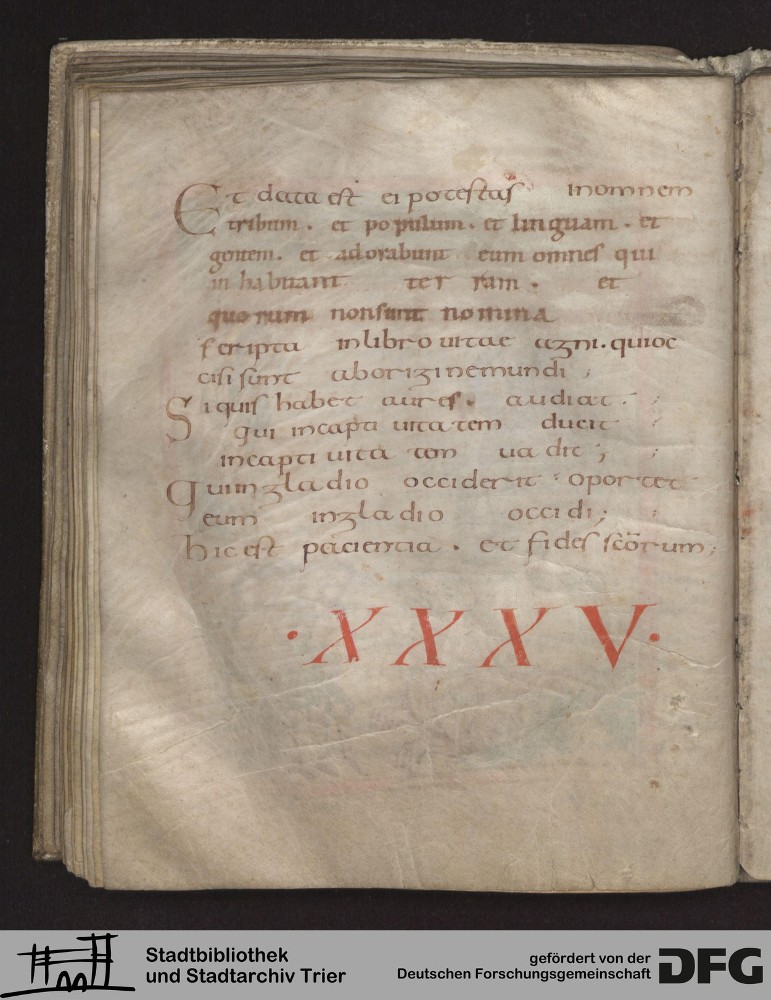 Et data est ei potestas inomnem
tribum. et populum. et linguam. et
gentem. et adorabunt eum omnes qui
inhabitant terram. et
quorum nonsunt nomina
scripta inlibro uitae agni. quioc
cisi sunt aboriginemundi ;
Si quis habet aures. audiat.
qui incapti uitatem ducit
incapti uita tem uadit ;
Qui ingladio occiderit : oportet
eum ingladio occidi ;
hic est pacientia . et fides scorum ;
· XXXV ·
Stadtbibliothek
und Stadtarchiv Trier
gefördert von der
Deutschen Forschungsgemeinschaft
DFG